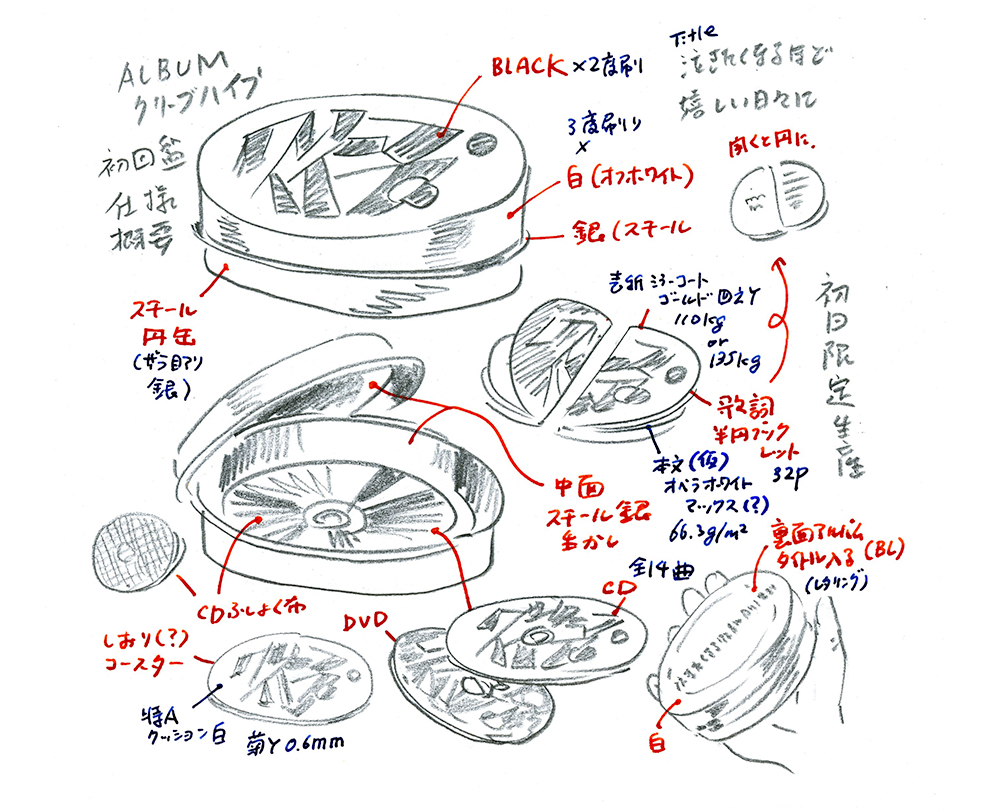 ALBUM
クリープハイプ
初回盤
仕様
概要
BLACK ×2度刷り
3度刷り
×
白(オフホワイト)
銀(スチール
Title
泣きたくなるほど
嬉しい日々に
開くと円に.
スチール
円缶
(ザラ目アリ
銀)
表紙 ミラーコート
ゴールド 四六Y
110kg
or
135kg
歌詞
半円ブック
レット
32P
本文(仮)
オペラホワイト
マックス(?)
66.3g/m²
初回限定生産
中面
スチール銀
生かし
全14曲
CDふしょく布
しおり(?)
コースター
特A
クッション白
菊Y 0.6mm
DVD
CD
裏面アルバム
タイトル入る(BL)
(レタリング)
泣きたくなるほど嬉しい日々に
白